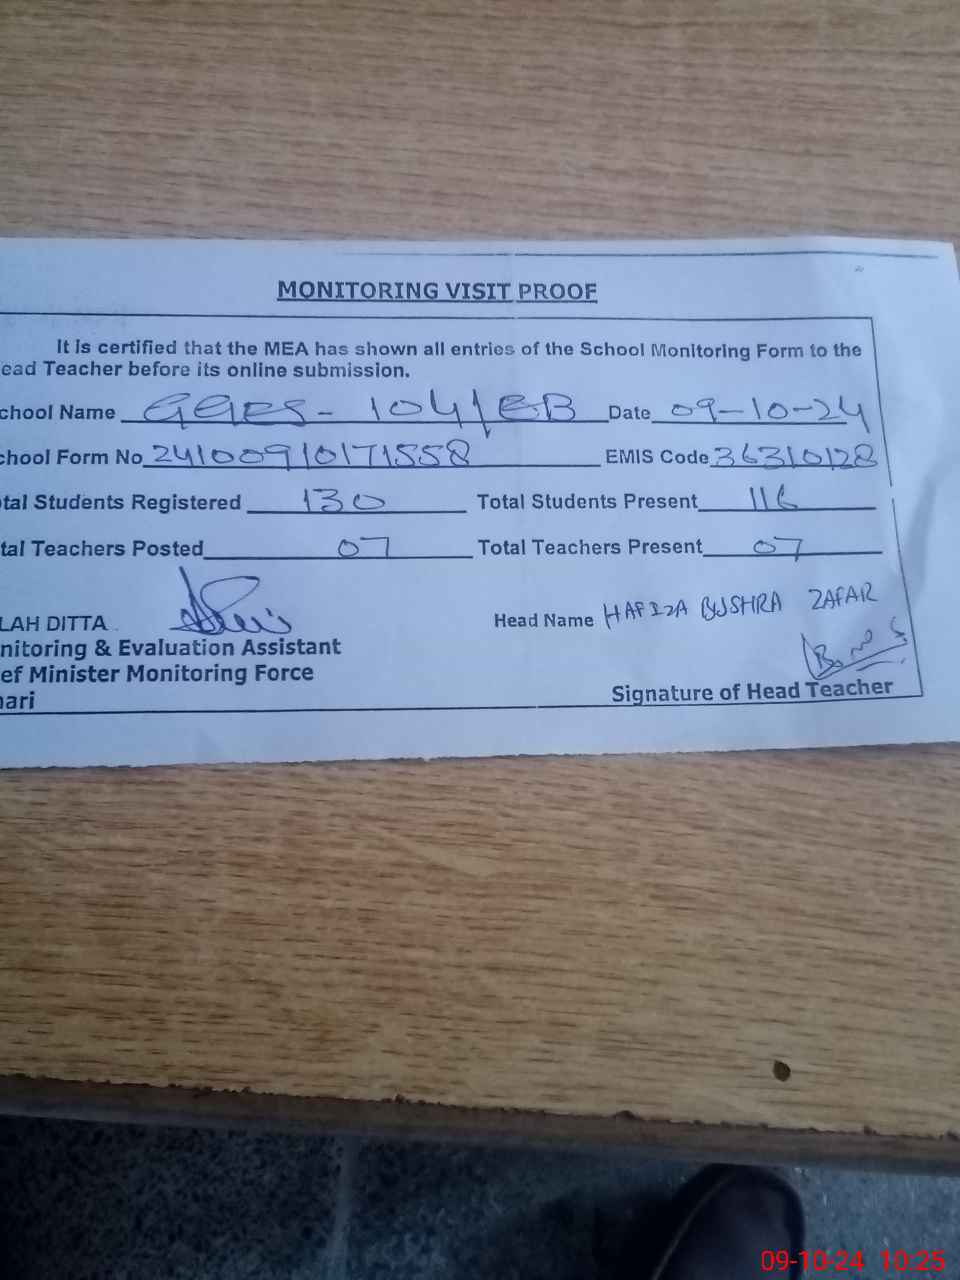 MONITORING VISIT PROOF
It is certified that the MEA has shown all entries of the School Monitoring Form to the
ead Teacher before its online submission.
chool Name GGES - 104/EB Date 09-10-24
chool Form No 24100910171558 EMIS Code 36310128
tal Students Registered 130 Total Students Present 116
tal Teachers Posted 07 Total Teachers Present 07
LAH DITTA Head Name HAFIZA BUSHRA ZAFAR
nitoring & Evaluation Assistant
ef Minister Monitoring Force
ari Signature of Head Teacher
09-10-24 10:25